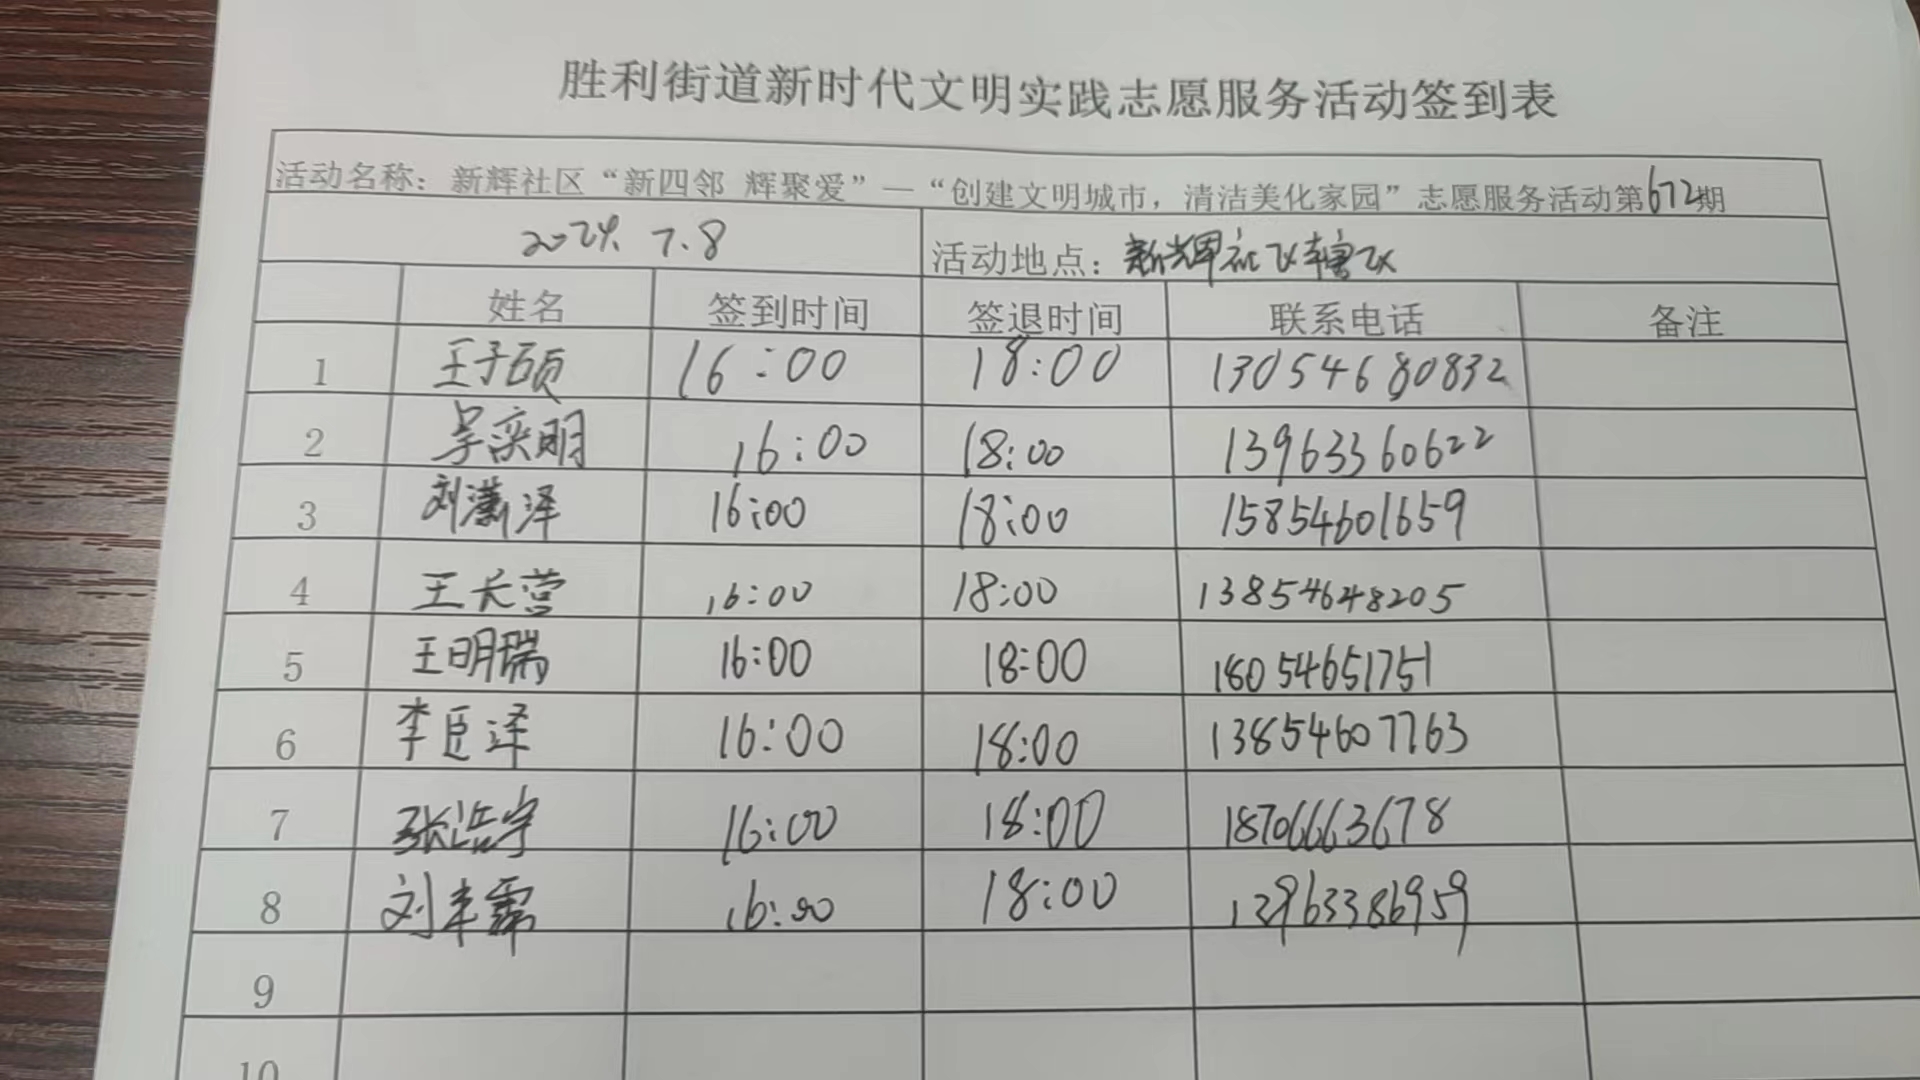 胜利街道新时代文明实践志愿服务活动签到表
活动名称：新辉社区“新四邻 辉聚爱”—“创建文明城市，清洁美化家园”志愿服务活动第672期
2024. 7.8 活动地点：新辉社区辖区
姓名 签到时间 签退时间 联系电话 备注
1 王子硕 16:00 18:00 13054680832
2 吴奕明 16:00 18:00 13963360622
3 刘潇泽 16:00 18:00 15854601659
4 王长营 16:00 18:00 13854648205
5 王明瑞 16:00 18:00 18054651751
6 李臣泽 16:00 18:00 13854607763
7 张浩宇 16:00 18:00 18706663678
8 刘丰霈 16:00 18:00 13963386959
9
10